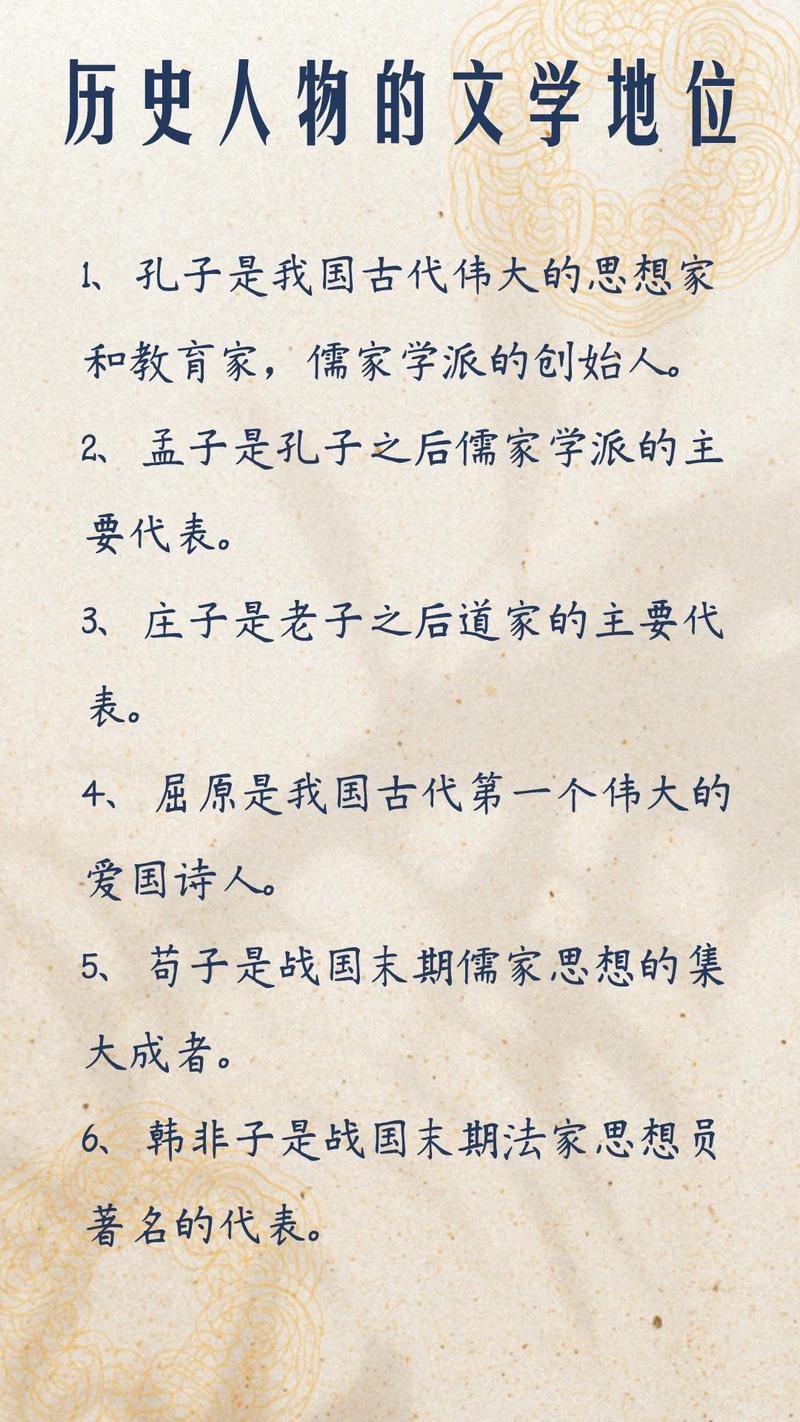 历史人物的文学地位
1、孔子是我国古代伟大的思想家
和教育家，儒家学派的创始人。
2、孟子是孔子之后儒家学派的主
要代表。
3、庄子是老子之后道家的主要代
表。
4、屈原是我国古代第一个伟大的
爱国诗人。
5、荀子是战国末期儒家思想的集
大成者。
6、韩非子是战国末期法家思想员
著名的代表。